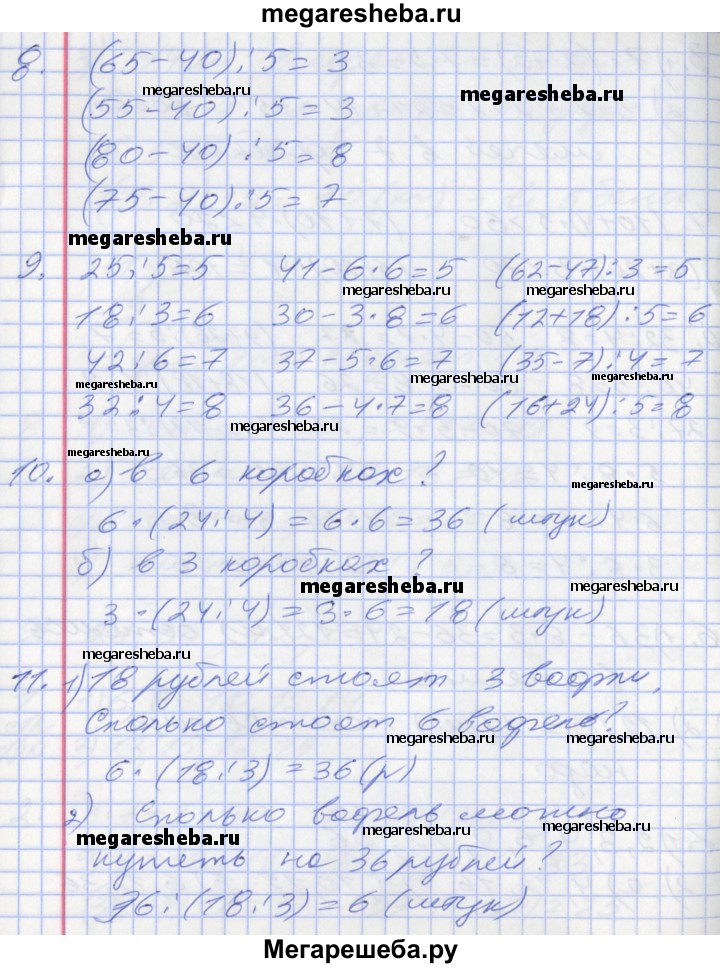 megaresheba.ru
8. (65-40):5= 3
megaresheba.ru
megaresheba.ru
(55-40):5=3
(80-40):5=8
(75-40):5=7
megaresheba.ru
9. 25:5=5 41-6·6=5 (62-47):3=5
megaresheba.ru
megaresheba.ru
18:3=6 30-3·8=6 (12+18):5=6
42:6=7 37-5·6=7 (35-7):4=7
megaresheba.ru
megaresheba.ru
megaresheba.ru
32:4=8 36-4·7=8 (16+24):5=8
megaresheba.ru
megaresheba.ru
10. а) в 6 коробках?
megaresheba.ru
6·(24:4)=6·6=36 (штук)
б) в 3 коробках?
megaresheba.ru
3·(24:4)=3·6=18 (штук)
megaresheba.ru
megaresheba.ru
11. 1) 18 рублей стоят 3 вафли.
Сколько стоят 6 вафель?
megaresheba.ru
megaresheba.ru
6·(18:3)=36(р)
2) Сколько вафель можно
megaresheba.ru
megaresheba.ru
megaresheba.ru
купить на 36 рублей?
36:(18:3)=6 (штук)
Мегарешеба.ру